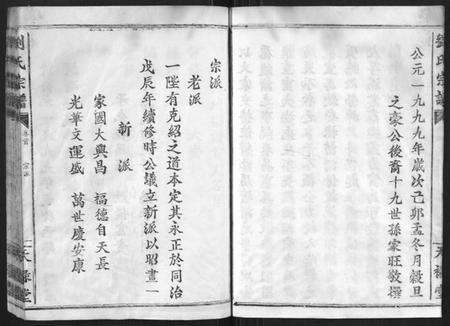 劉氏宗譜
公元一九九九年歲次己卯孟冬月穀旦
之豪公後裔十九世孫家旺敬撰
天祿堂
宗派
老派
一陞有克紹之道本定其永正於同治
戊辰年續修時公議立新派以昭畫一
新派
家國大興昌 福德自天長
光華文運盛 萬世慶安康
劉氏宗譜
天祿堂